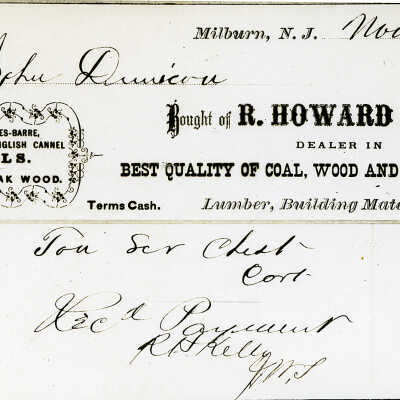 Milburn, N. J. Nov
John Dunican
Bought of R. HOWARD
DEALER IN
BEST QUALITY OF COAL, WOOD AND
Terms Cash. Lumber, Building Mate
ES-BARRE,
NGLISH CANNEL
LS.
AK WOOD.
Ton Scr Chest
Cort
Rec'd Payment